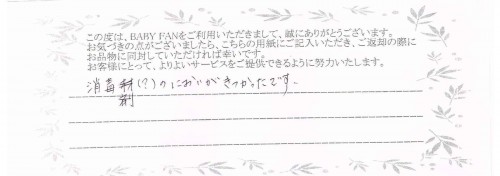 この度は、BABY FANをご利用いただきまして、誠にありがとうございます。
お気づきの点がございましたら、こちらの用紙にご記入いただき、ご返却の際に
お品物に同封していただければ幸いです。
お客様にとって、よりよいサービスをご提供できるように努力いたします。
消毒剤(?)のにおいがきつかったです。